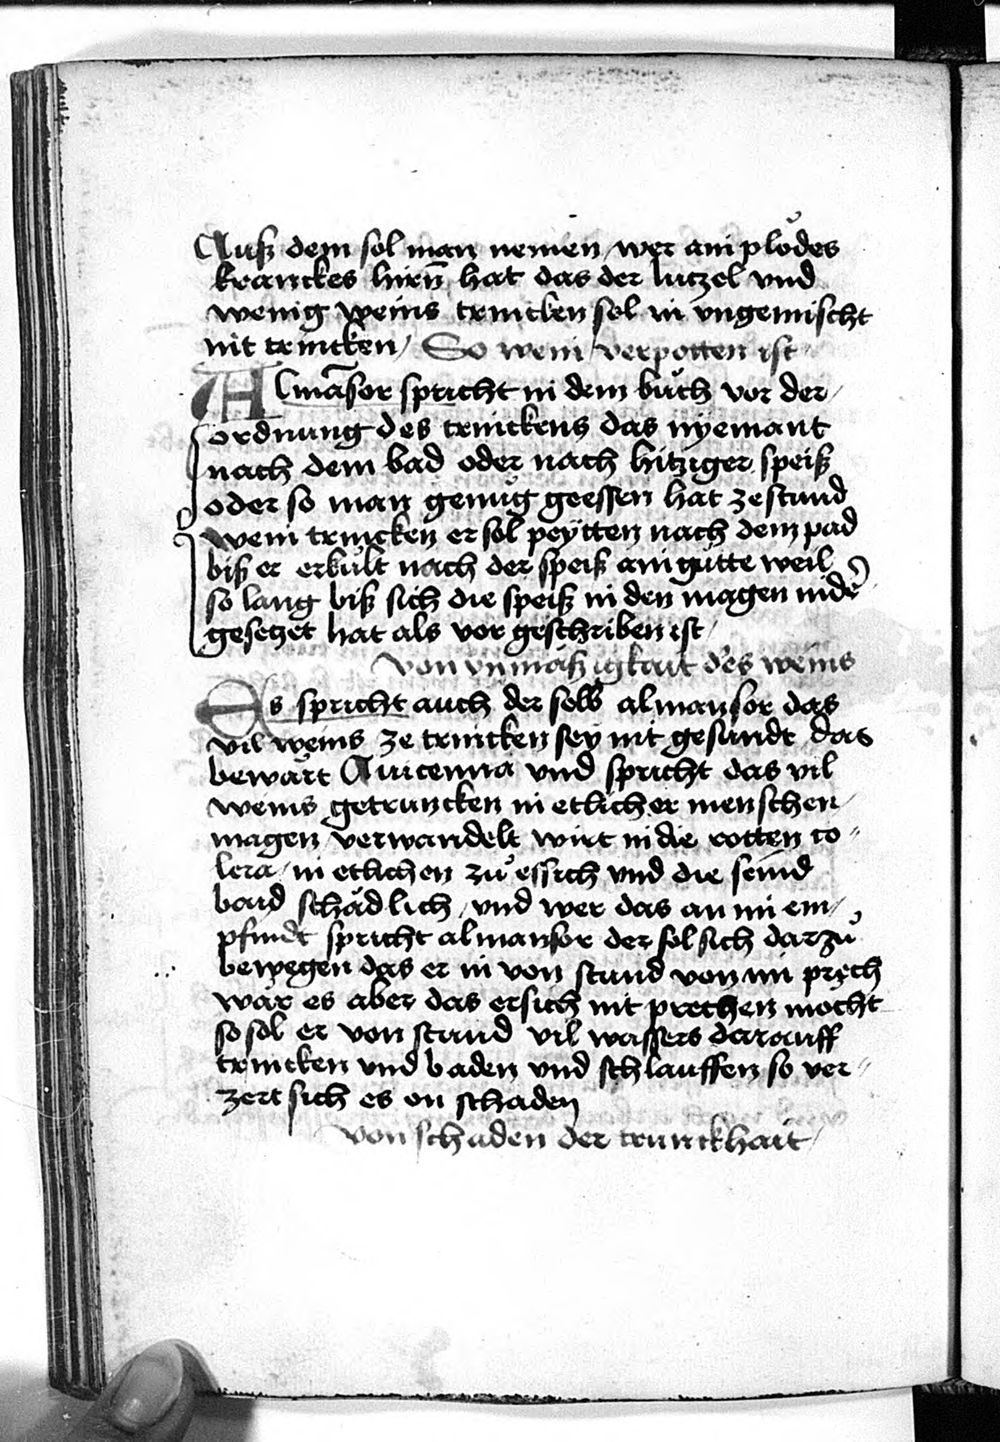 Auß dem sol man nemen / wer ain plödes
kranckes hirn̄ hat das der lutzel vnd
wenig weins trincken sol in vngemischt
nit trincken / So wein verpotten ist
Almāsor spricht in dem bůch vor der
ordnung des trinckens das nyemant
nach dem bad oder nach hitziger speiß
oder so man genůg geessen hat ze stund
wein trincken er sol peytten nach dem pad
biß er erkült nach der speiß ain gůtte weil
so lang biß sich die speiß in den magen nider
gesetzet hat als vor geschriben ist /
Von vnmässigkait des weins
Es spricht auch der selb almansor das
vil weins ze trincken sey nit gesundt das
bewärt Auicenna vnd spricht das vil
weins getruncken in etlicher menschen
magen verwandelt wirt in die rotten co
lera / in etlichen zů essich vnd die seind
baid schädlich / vnd wer das an im em
pfindt spricht almansor der sol sich darzů
bewegen das er in von stund von im prech
wär es aber das er sich nit prechen möcht
so sol er von stund vil wassers darauff
trincken vnd baden vnd schlauffen so ver
zert sich es on schaden
Von schaden der trunckhait /